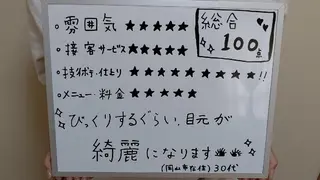 ・雰囲気 ★★★★★
総合 100点
・接客サービス ★★★★★
・技術・仕上り ★★★★★★★★★!!
・メニュー・料金 ★★★★★
びっくりするぐらい、目元が
綺麗になります
(岡山市在住) 30代